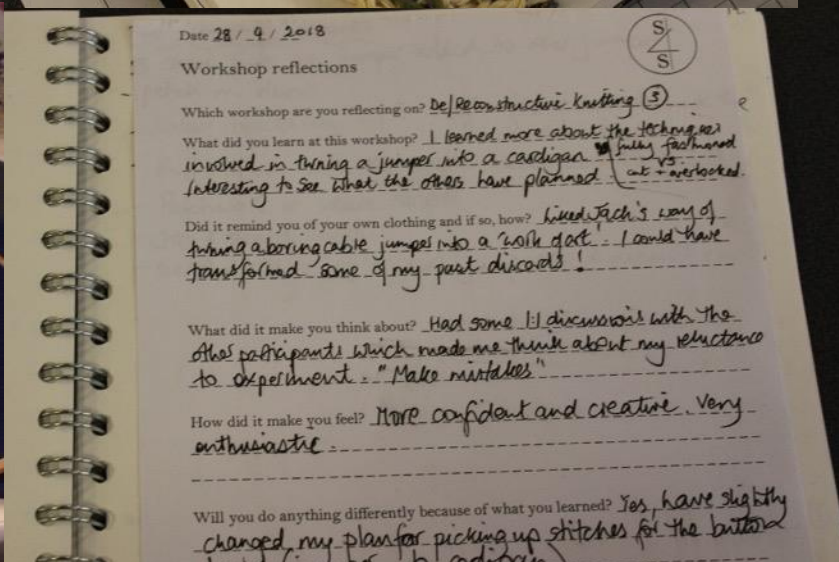 Date 28 / 4 / 2018
S4S
Workshop reflections
Which workshop are you reflecting on? De/Reconstructive Knitting (3)
What did you learn at this workshop? I learned more about the techniques
involved in turning a jumper into a cardigan ( fully fashioned
vs
Interesting to see what the others have planned cut + overlocked.
Did it remind you of your own clothing and if so, how? Liked Jach's way of
turning a boring cable jumper into a 'work of art'. I could have
transformed some of my past discards!
What did it make you think about? Had some 1:1 discussions with the
other participants which made me think about my reluctance
to experiment. "Make mistakes"
How did it make you feel? More confident and creative. Very
enthusiastic.
Will you do anything differently because of what you learned? Yes, have slightly
changed my plan for picking up stitches for the button
cardigan)